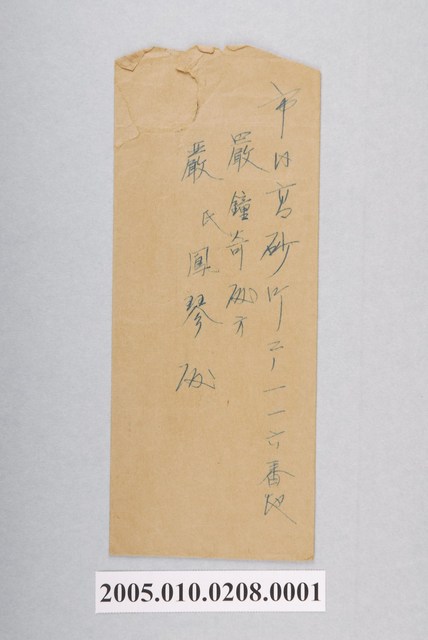 市内高砂町二ノ一一六番地
嚴鐘奇殿方
嚴氏鳳琴殿
2005.010.0208.0001